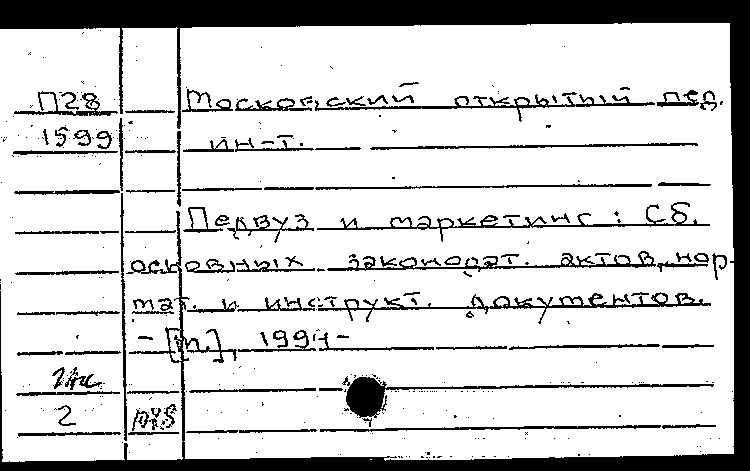 П28 Московский открытый пед.
1599 ин-т.
Педвуз и маркетинг : Сб.
основных законодат. актов, нор-
мат. и инструкт. документов.
- [М.], 1991-
2